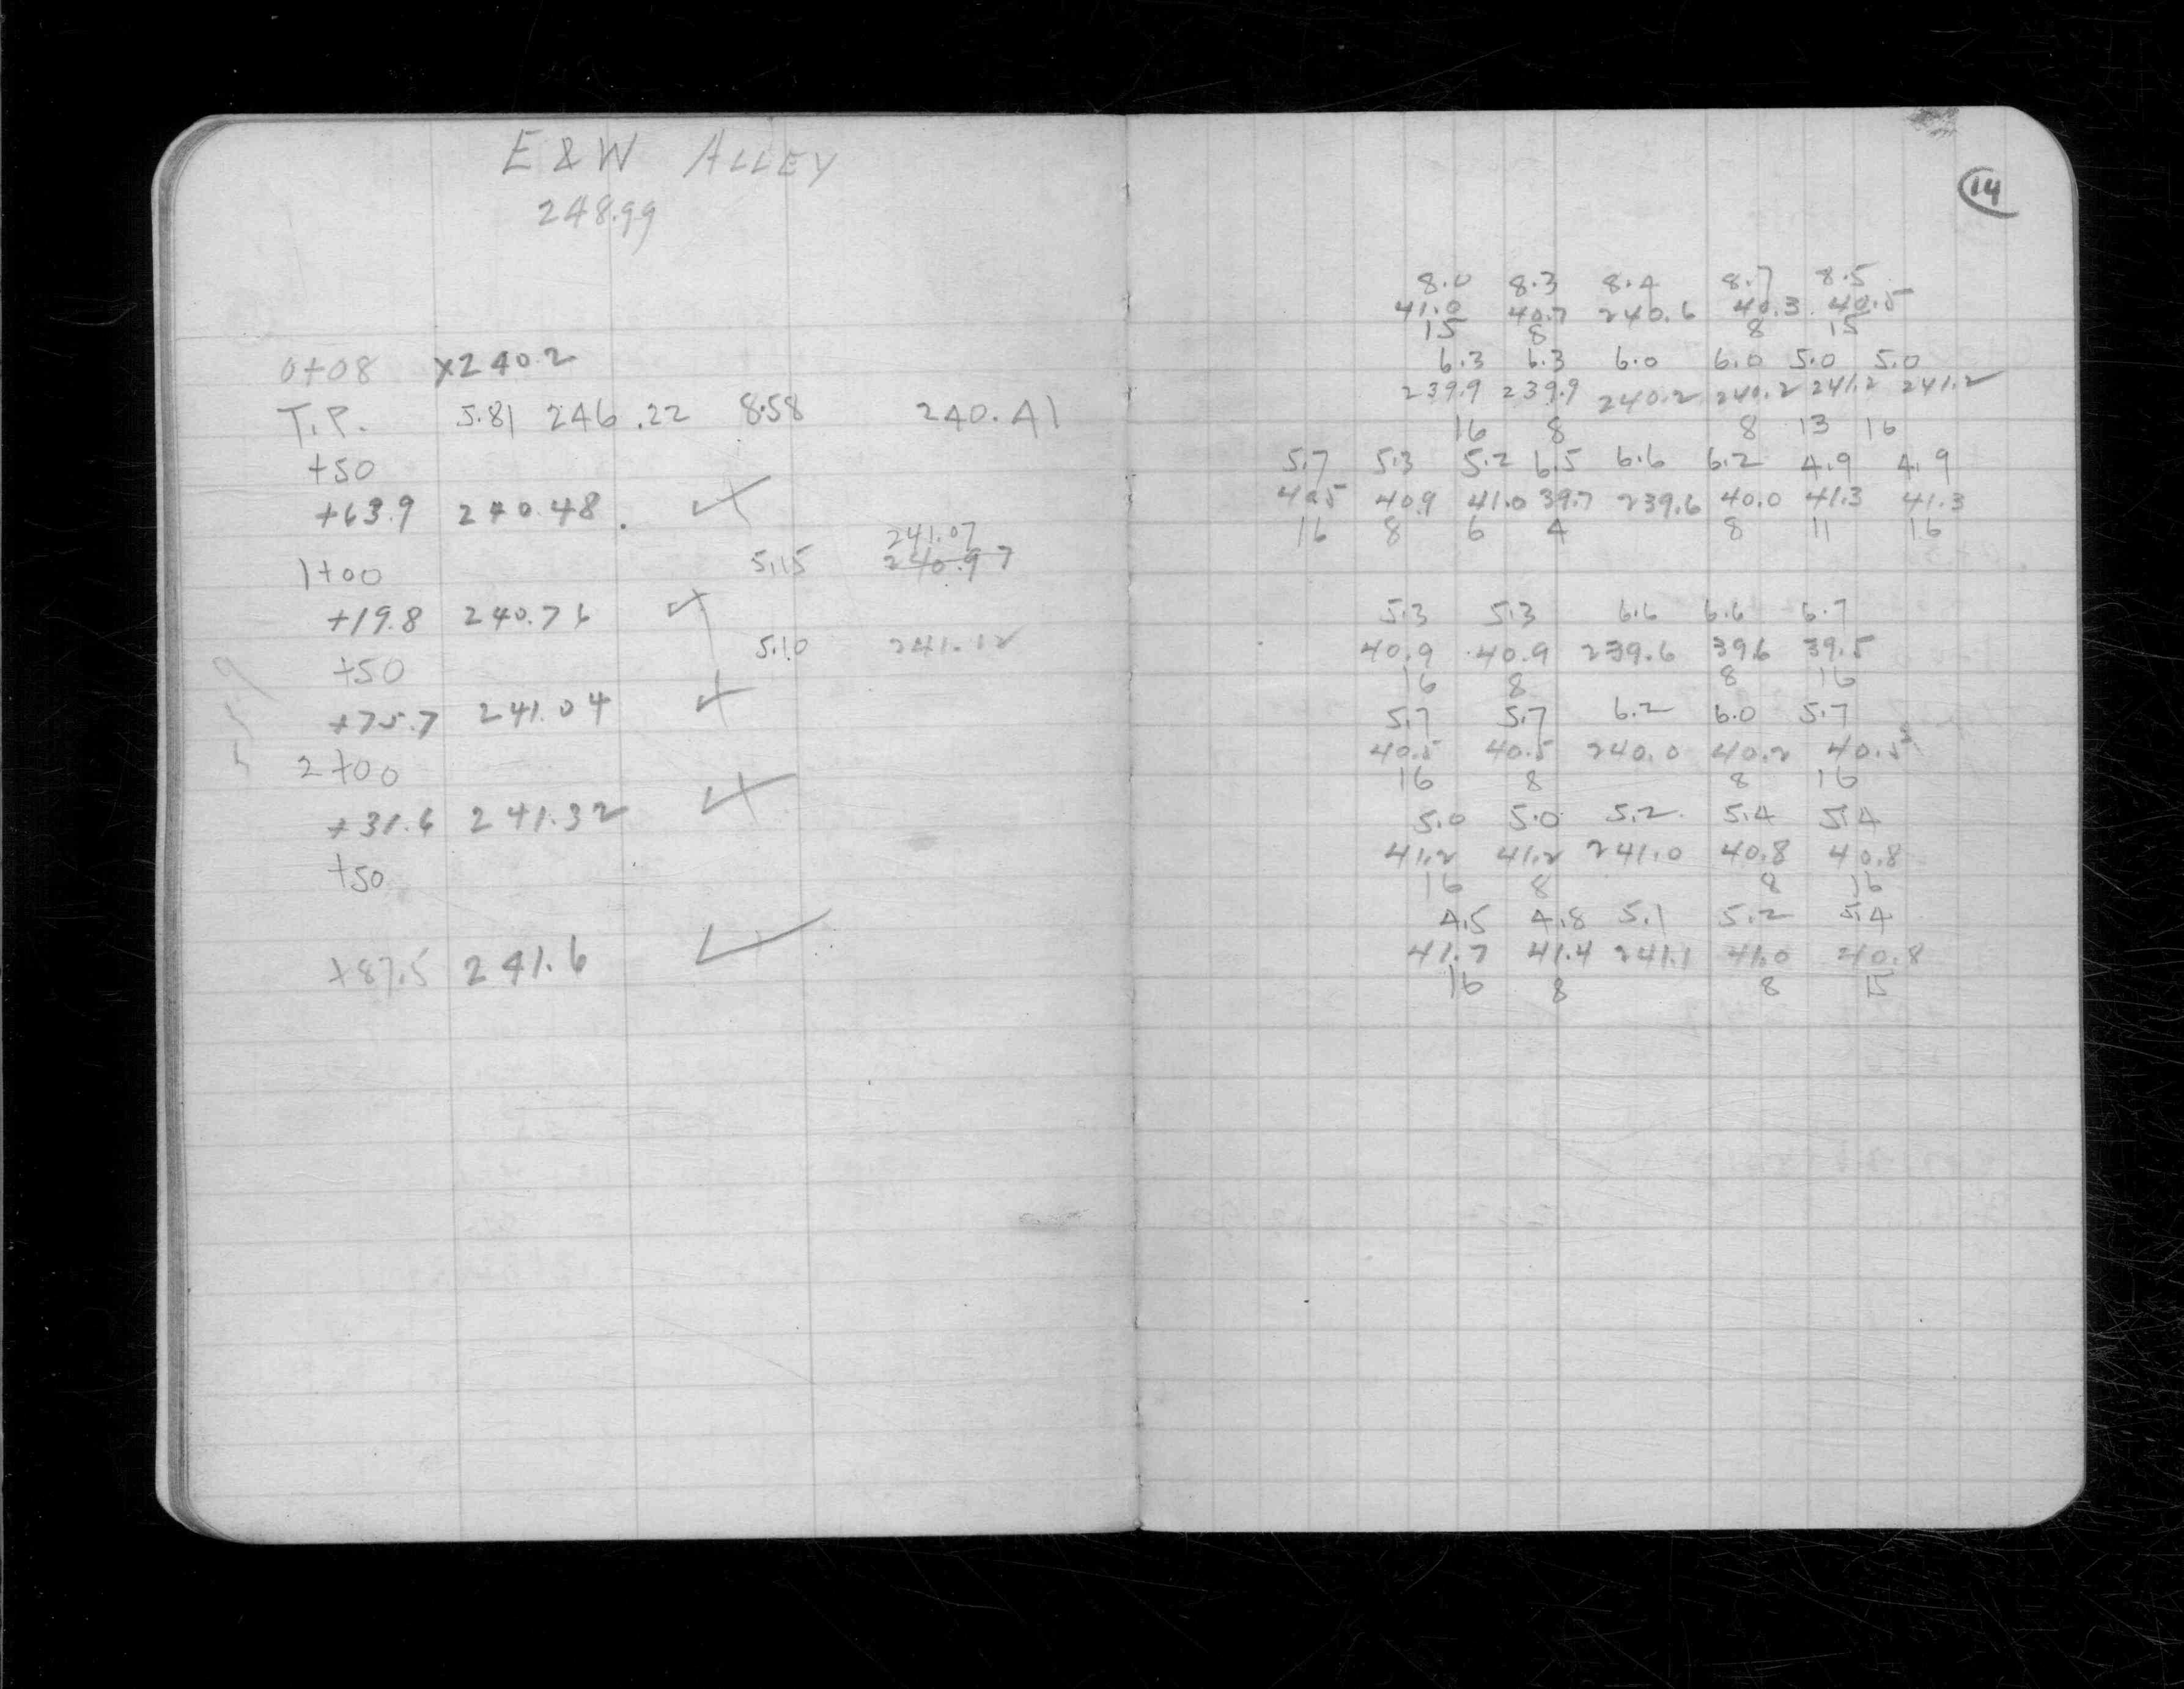 E & W ALLEY
248.99
0+08 x240.2
T.P. 5.81 246.22 8.58 240.41
+50
+63.9 240.48.
241.07
1+00 5.15 240.97
+19.8 240.76
+50 5.10 241.12
+75.7 241.04
2+00
+31.6 241.32
+50
+87.5 241.6
14
8.0 8.3 8.4 8.7 8.5
41.0 40.7 240.6 40.3 40.5
15 8 8 15
6.3 6.3 6.0 6.0 5.0 5.0
239.9 239.9 240.2 240.2 241.2 241.2
16 8 8 13 16
5.7 5.3 5.2 6.5 6.6 6.2 4.9 4.9
40.5 40.9 41.0 39.7 239.6 40.0 41.3 41.3
16 8 6 4 8 11 16
5.3 5.3 6.6 6.6 6.7
40.9 40.9 239.6 39.6 39.5
16 8 8 16
5.7 5.7 6.2 6.0 5.7
40.5 40.5 240.0 40.2 40.5
16 8 8 16
5.0 5.0 5.2 5.4 5.4
41.2 41.2 241.0 40.8 40.8
16 8 8 16
4.5 4.8 5.1 5.2 5.4
41.7 41.4 241.1 41.0 40.8
16 8 8 15